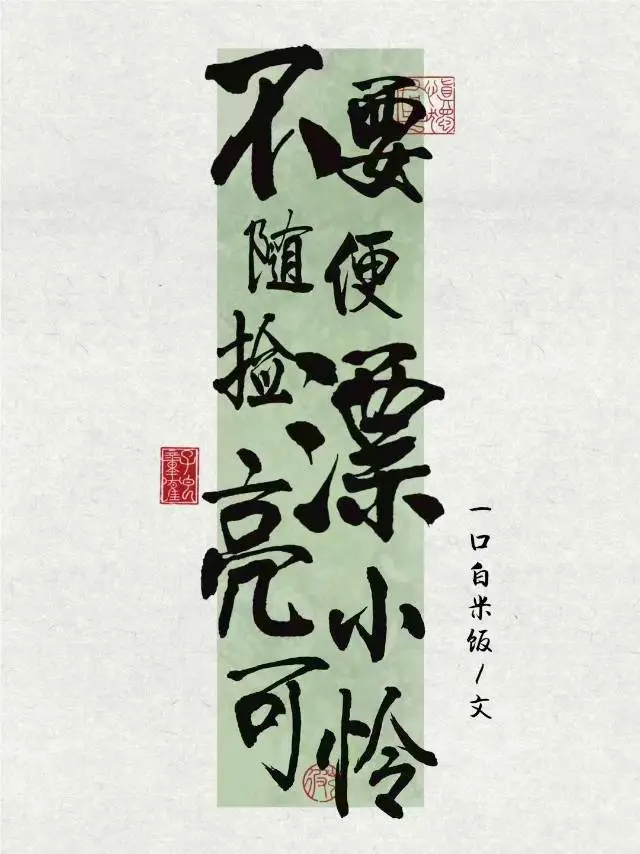 不要
随便
捡漂
亮小
可怜
一口自米饭/文